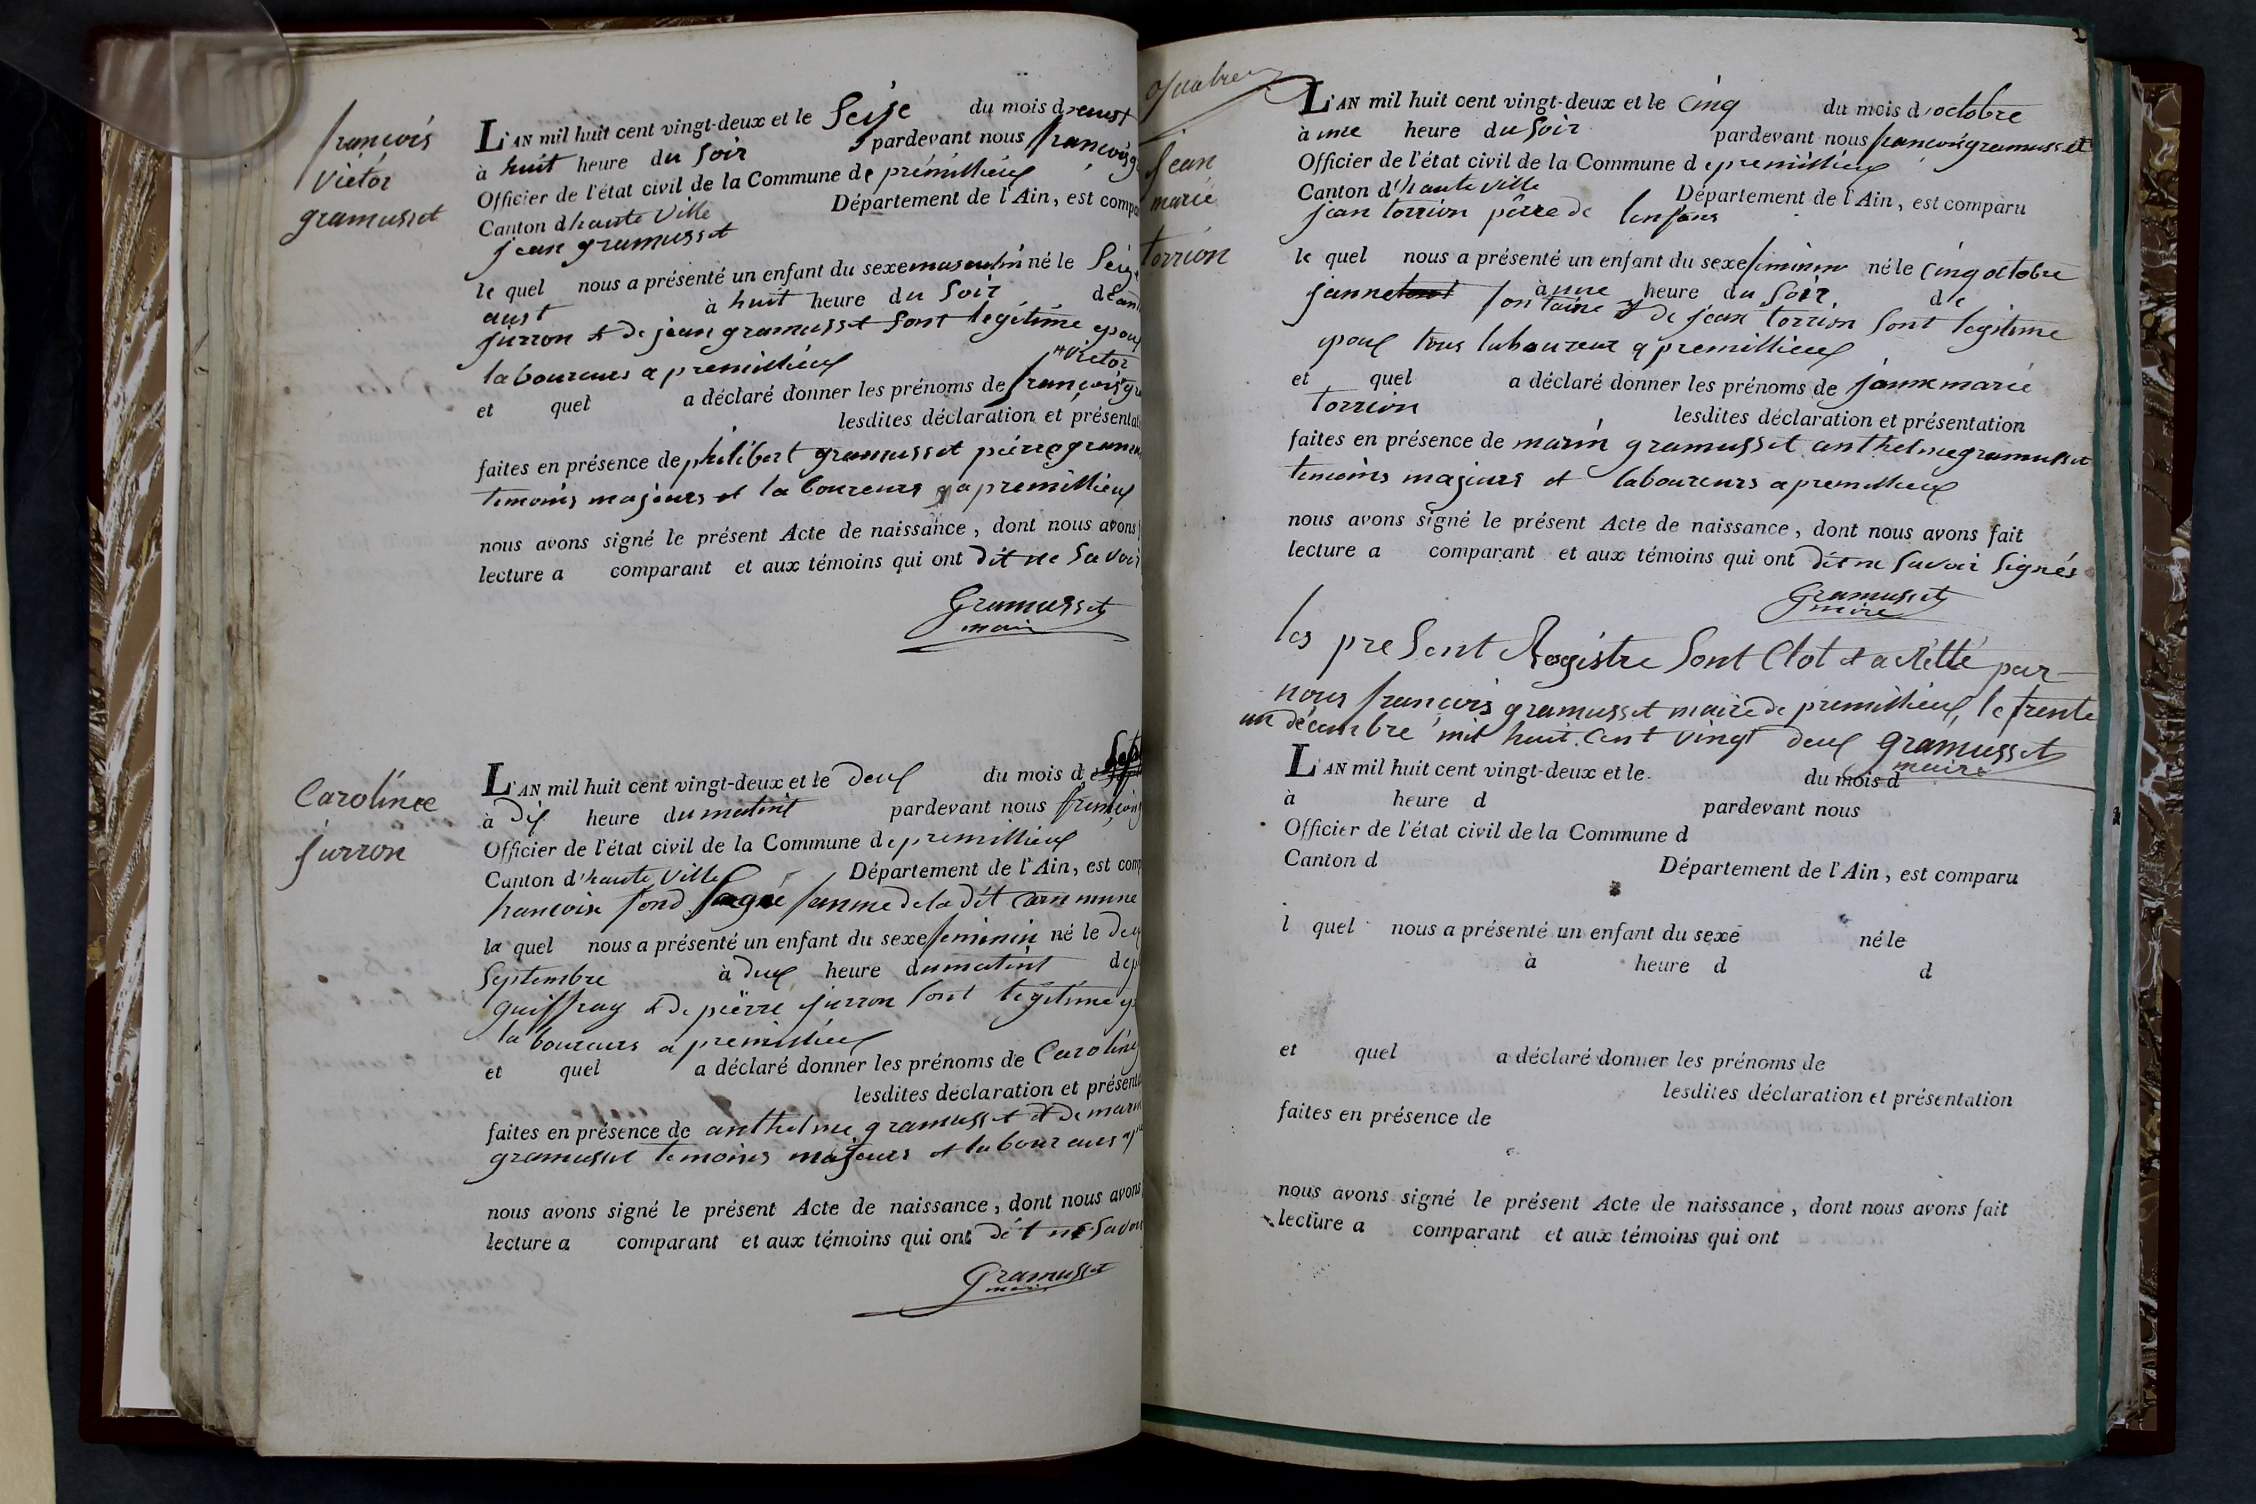 françois
victor
gramusset
L'AN mil huit cent vingt-deux et le Seise du mois d'aust
à huit heure du Soir pardevant nous françois
Officier de l'état civil de la Commune de prémillieux
Canton d haute ville Département de l'Ain, est compa
jean gramusset
le quel nous a présenté un enfant du sexe masculin né le Seize
aust à huit heure du Soir de
jurron et de jean gramusset Sont légitime epoux
laboureurs a premillieux
victor
et quel a déclaré donner les prénoms de françois
lesdites déclaration et présentat
faites en présence de philibert gramusset pierre
temoins majeurs et laboureurs a premillieux
nous avons signé le présent Acte de naissance, dont nous avons
lecture a comparant et aux témoins qui ont dit ne Savoir
Gramusset
mair
Carolinee
jurron
L'AN mil huit cent vingt-deux et le deux du mois de
à Dix heure du matint pardevant nous françois
Officier de l'état civil de la Commune de premillieux
Canton d'haute ville Département de l'Ain, est comp
francoise fond Sagé famme de la dit Commune
la quel nous a présenté un enfant du sexe feminin né le Deux
Septembre à deux heure du matint de
guiffray et De pierre jurron Sont légitime
laboureurs a premillieux
et quel a déclaré donner les prénoms de Caroline
lesdites déclaration et présenta
faites en présence de anthelme gramusset et De marin
gramusset temoins majeurs et laboureurs
nous avons signé le présent Acte de naissance, dont nous avons
lecture a comparant et aux témoins qui ont dét ne Savoir
Gramusset
mair
jean
marie
torrion
L'AN mil huit cent vingt-deux et le cinq du mois d'octobre
à une heure du Soir pardevant nous françois gramusset
Officier de l'état civil de la Commune de premillieux
Canton d'haute ville Département de l'Ain, est comparu
jean torrion père de lenfans
le quel nous a présenté un enfant du sexe feminin né le cinq octobre
à une heure du Soir de
janne fontaine et de jean torrion Sont legitime
epoux tous laboureur a premillieux
et quel a déclaré donner les prénoms de janne marie
torrion lesdites déclaration et présentation
faites en présence de marin gramusset anthelme gramusset
temoins majeurs et laboureurs a premillieux
nous avons signé le présent Acte de naissance, dont nous avons fait
lecture a comparant et aux témoins qui ont dit ne Savoir Signés
Gramusset
maire
les preSent Registre Sont Clot et arrétté par
nous françois gramusset maire de premillieux, le trente
un décembre mil huit Cent vingt deux gramusset
maire
L'AN mil huit cent vingt-deux et le du mois d
à heure d pardevant nous
Officier de l'état civil de la Commune d
Canton d Département de l'Ain, est comparu
l quel nous a présenté un enfant du sexe né le
à heure d d
et quel a déclaré donner les prénoms de
lesdites déclaration et présentation
faites en présence de
nous avons signé le présent Acte de naissance, dont nous avons fait
lecture a comparant et aux témoins qui ont